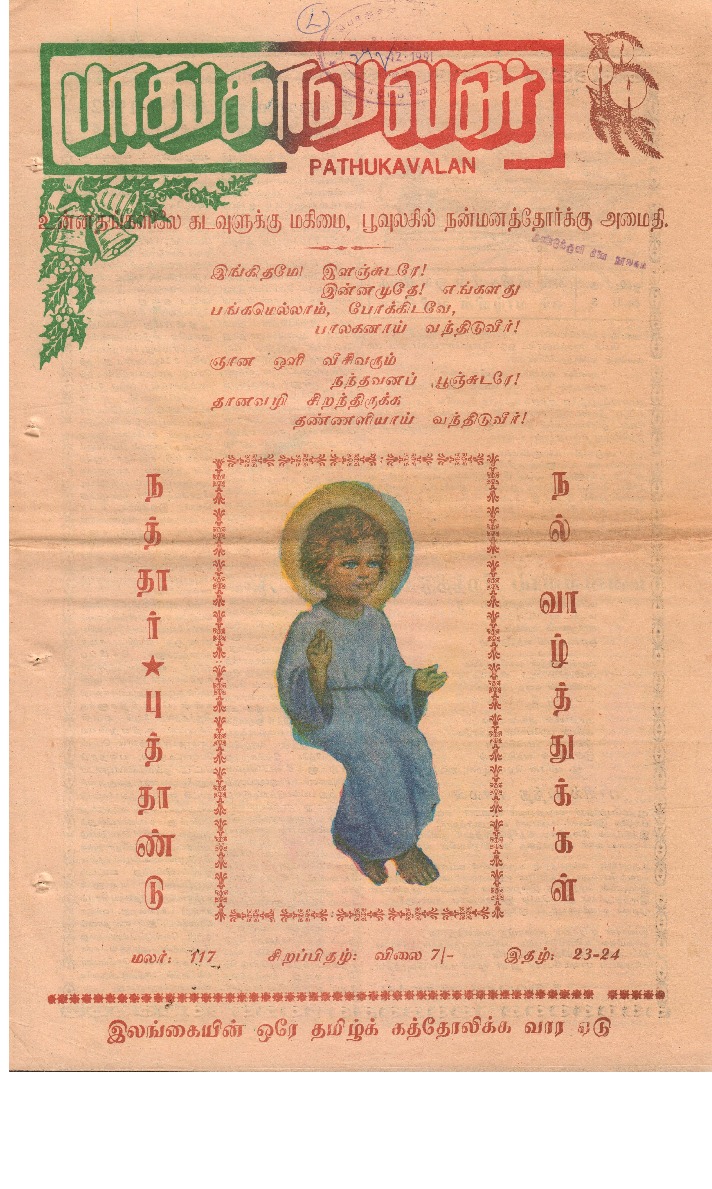 12-1991
பாதுகாவலன்
PATHUKAVALAN
உன்னதங்களிலே கடவுளுக்கு மகிமை, பூவுலகில் நன்மனத்தோர்க்கு அமைதி.
இங்கிதமே! இளஞ்சுடரே!
இன்னமுதே! எங்களது
பங்கமெல்லாம், போக்கிடவே,
பாலகனாய் வந்திடுவீர்!
ஞான ஒளி வீசிவரும்
நந்தவனப் பூஞ்சுடரே!
தானவழி சிறந்திருக்க
தண்ணளியாய் வந்திடுவீர்!
நத்தார் ★ புத்தாண்டு
நல் வாழ்த்துக்கள்
மலர்: 117 சிறப்பிதழ்: விலை 7/- இதழ்: 23-24
இலங்கையின் ஒரே தமிழ்க் கத்தோலிக்க வார ஏடு